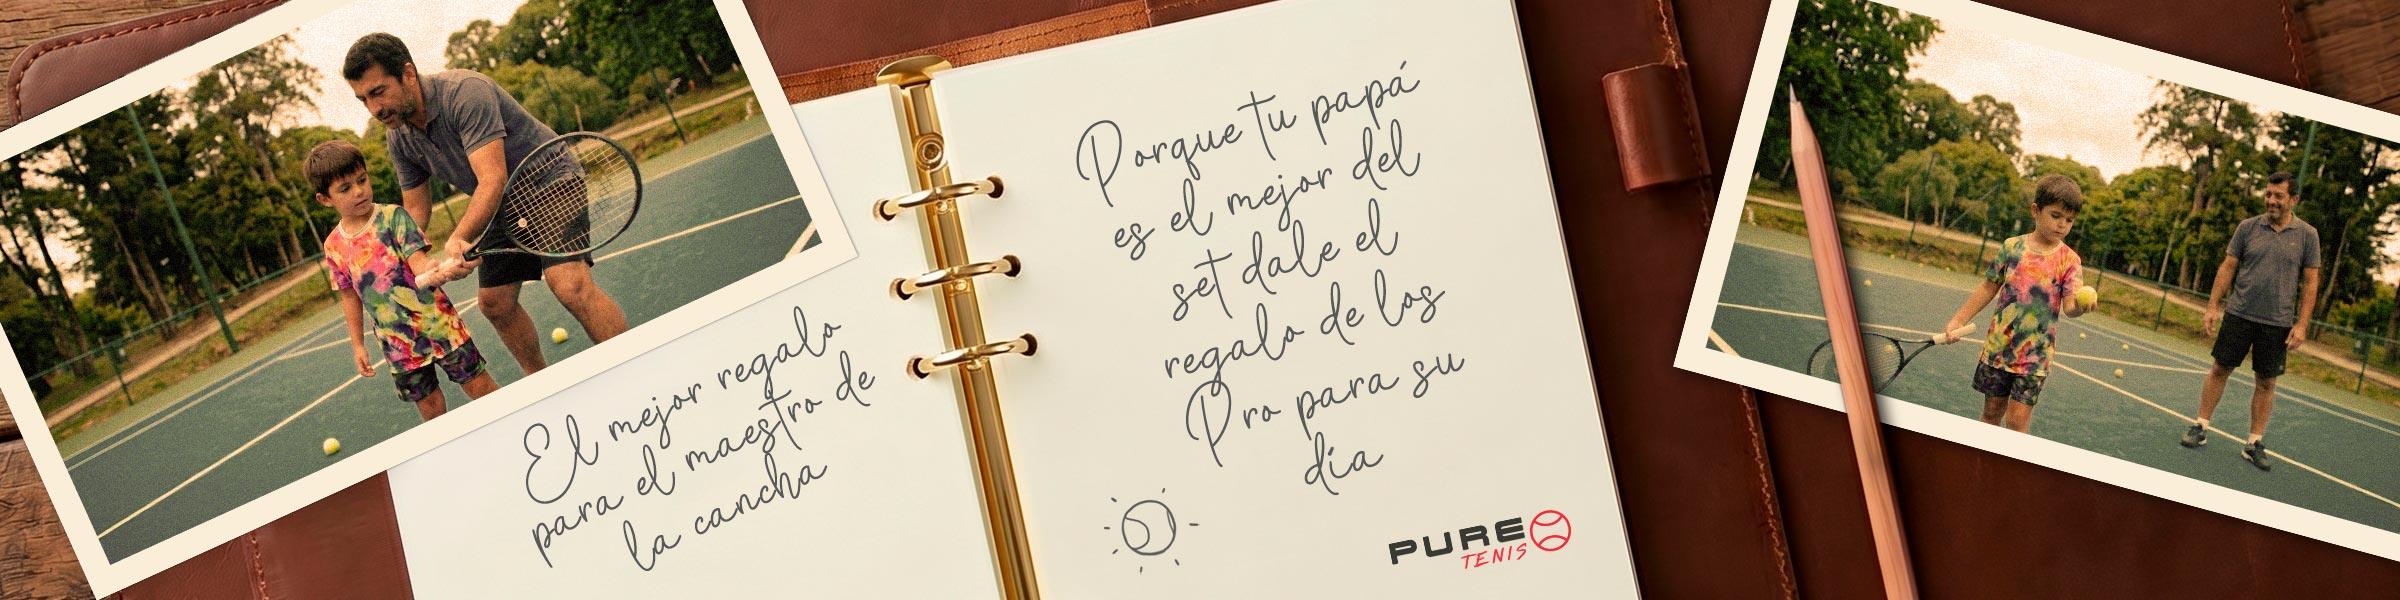 El mejor regalo
para el maestro de
la cancha
Porque tu papá
es el mejor del
set dale el
regalo de los
Pro para su
día
PURE
TENIS